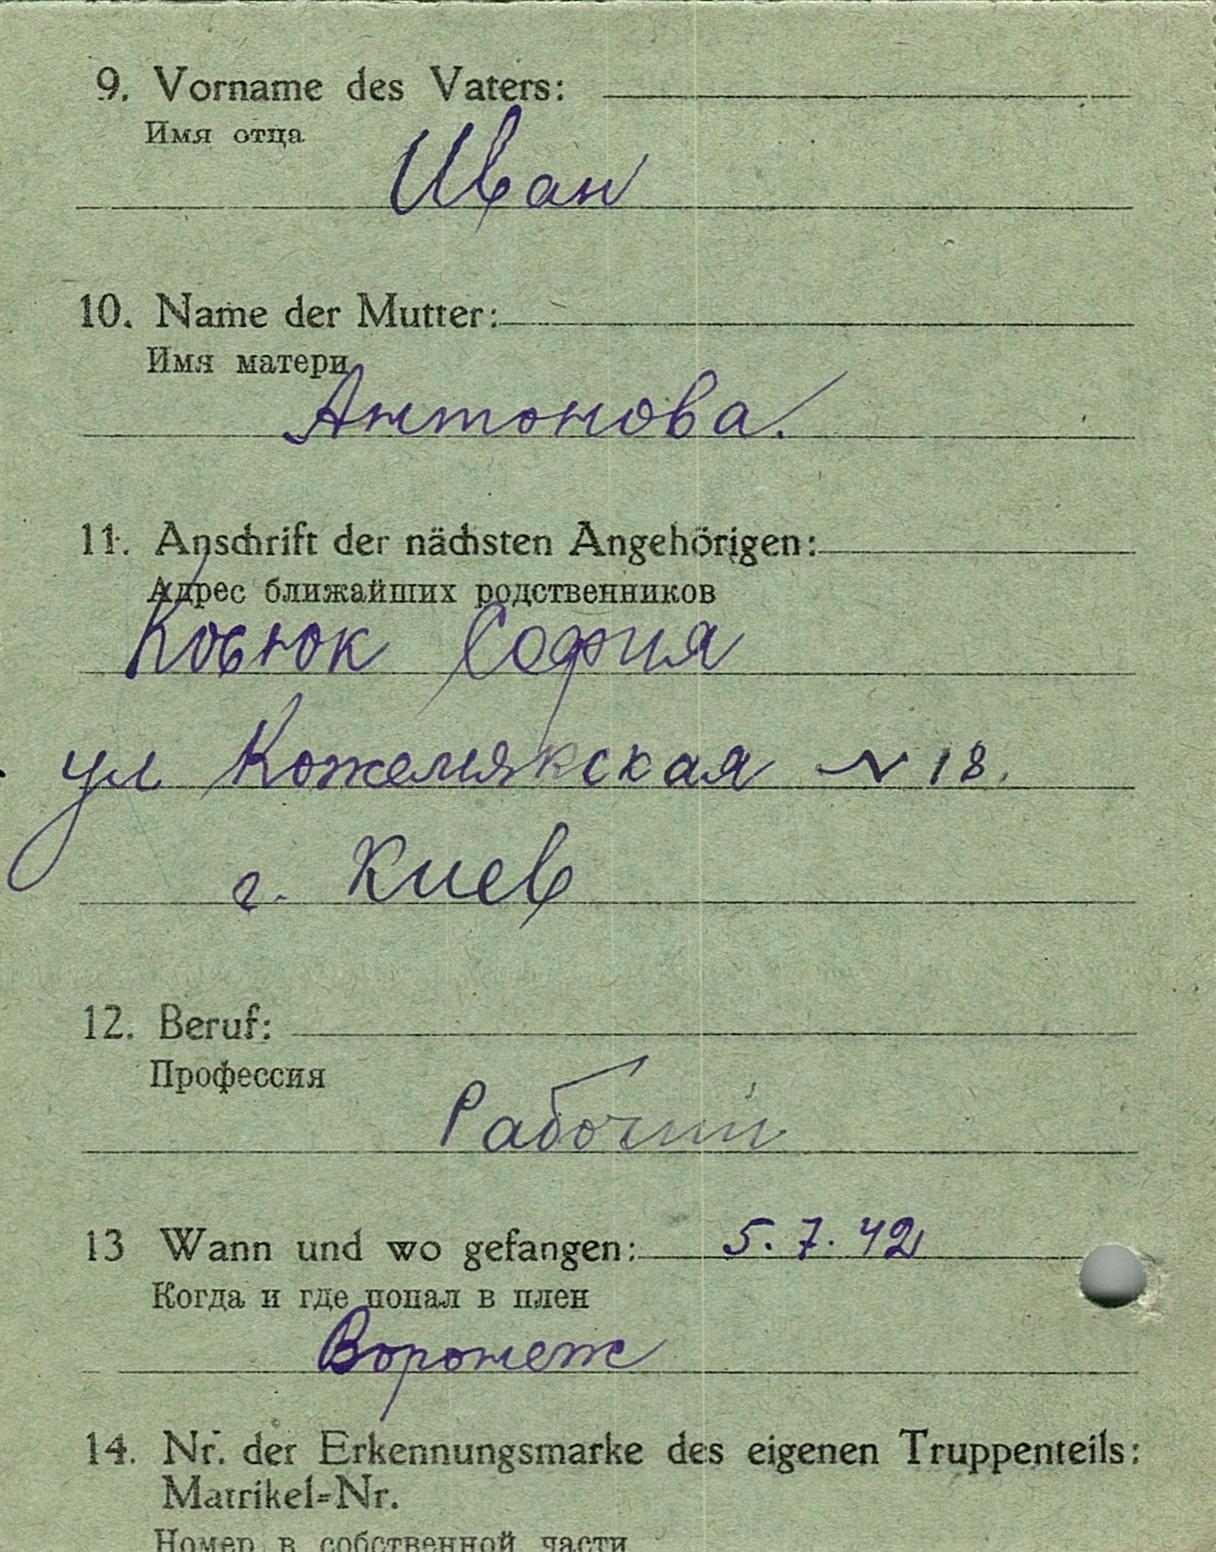 9. Vorname des Vaters:
Имя отца
Иван
10. Name der Mutter:
Имя матери
Антонова.
11. Anschrift der nächsten Angehörigen:
Адрес ближайших родственников
София
ул Кожемякская N 18.
г. Киев
12. Beruf:
Профессия
Рабочий
13 Wann und wo gefangen: 5.7.42
Когда и где попал в плен
Воронеж
14. Nr. der Erkennungsmarke des eigenen Truppenteils:
Matrikel=Nr.
Номер в собственной части